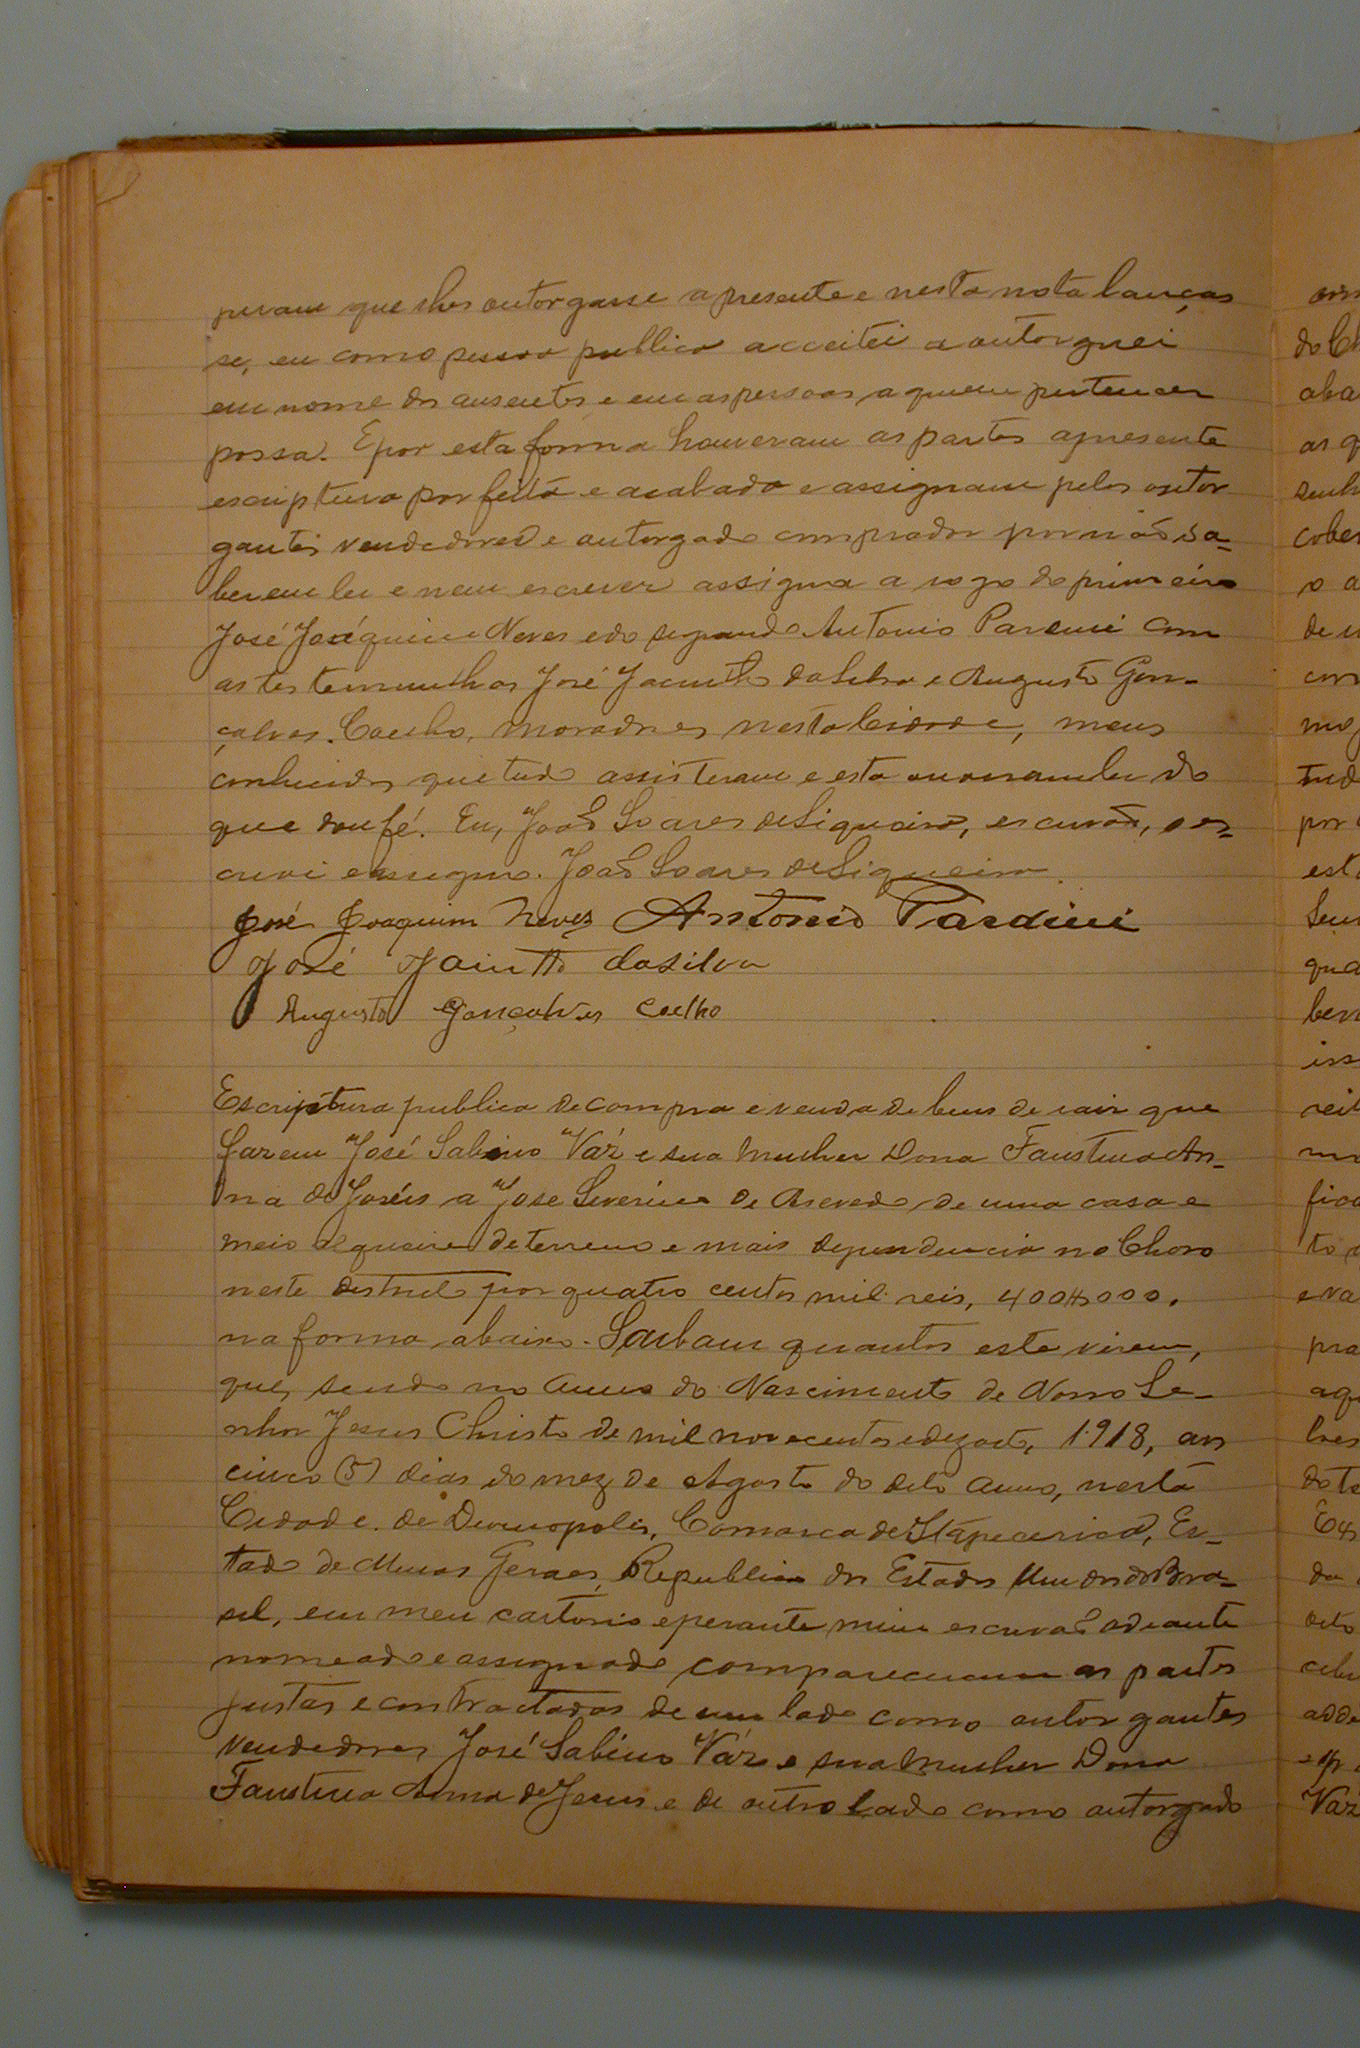 que lhes outorgasse a presente e nesta nota lanças
se, eu como pessoa publica acceitei a outorguei
em nome dos ausentes e em as pessoas a quem pertencer
possa. E por esta forma houveram as partes apresente
escriptura por feita e acabada e assignam pelos outor
gantes vendedores e outorgado comprador por não sa-
berem ler e nem escrever assigna a rogo do primeiro
José Joaquim Neves e do segundo Antonio Pardini com
as testemunhas José Jacintho da Silva e Augusto Gon-
çalves Coelho, moradores nesta Cidade, meus
conhecidos que tudo assisteram e esta ouviram ler do
que dou fé. Eu, João Soares de Siqueira, escrivão, o es-
crevi e assigno. João Soares de Siqueira
José Joaquim Neves Antonio Pardini
José Jacintho da Silva
Augusto Gonçalves Coelho
Escriptura publica de compra e venda de bens de raiz que
fazem José Sabino Váz e sua mulher Dona Faustina An-
na de Jesus a José Severino de Asevedo de uma casa e
meio alqueire de terreno e mais dependencia no Choro
neste destricto por quatro centos mil reis, 400$000.
na forma abaixo. Saibam quantos esta virem,
que, sendo no Anno do Nascimento de Nosso Se-
nhor Jesus Christo de mil novecentos e dezoito, 1918, aos
cinco (5) dias do mez de Agosto do dito anno, nesta
Cidade de Divinopolis, Comarca de Itapecerica, Es-
tado de Minas Geraes, Republica dos Estados Unidos do Bra-
sil, em meu cartorio e perante mim escrivão adeante
nomeado e assignado compareceram as partes
justas e contractadas de um lado como outorgantes
vendedores José Sabino Váz e sua mulher Dona
Faustina Anna de Jesus e de outro lado como outorgado